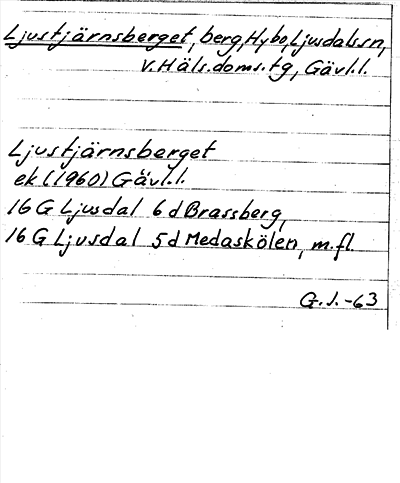 Ljustjärnsberget, berg, Hybo, Ljusdals sn,
V. Häls. doms. tg, Gävl.l.
Ljustjärnsberget
ek (1960) Gävl.l.
16 G Ljusdal 6 d Brassberg,
16 G Ljusdal 5d Medaskölen, m.fl.
G.J.-63